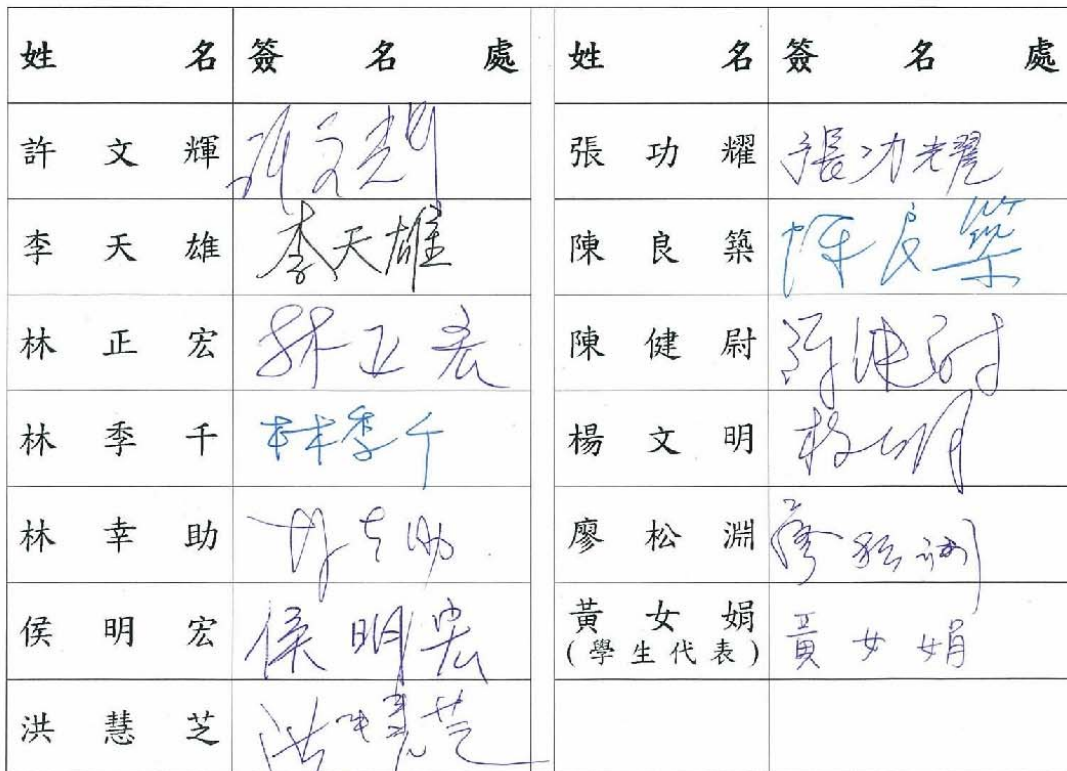 姓名 簽名處 姓名 簽名處
許文輝 許文輝 張功耀 張功耀
李天雄 李天雄 陳良築 陳良築
林正宏 林正宏 陳健尉 陳健尉
林季千 林季千 楊文明 楊文明
林幸助 林幸助 廖松淵 廖松淵
侯明宏 侯明宏 黃女娟 黃女娟
(學生代表)
洪慧芝 洪慧芝